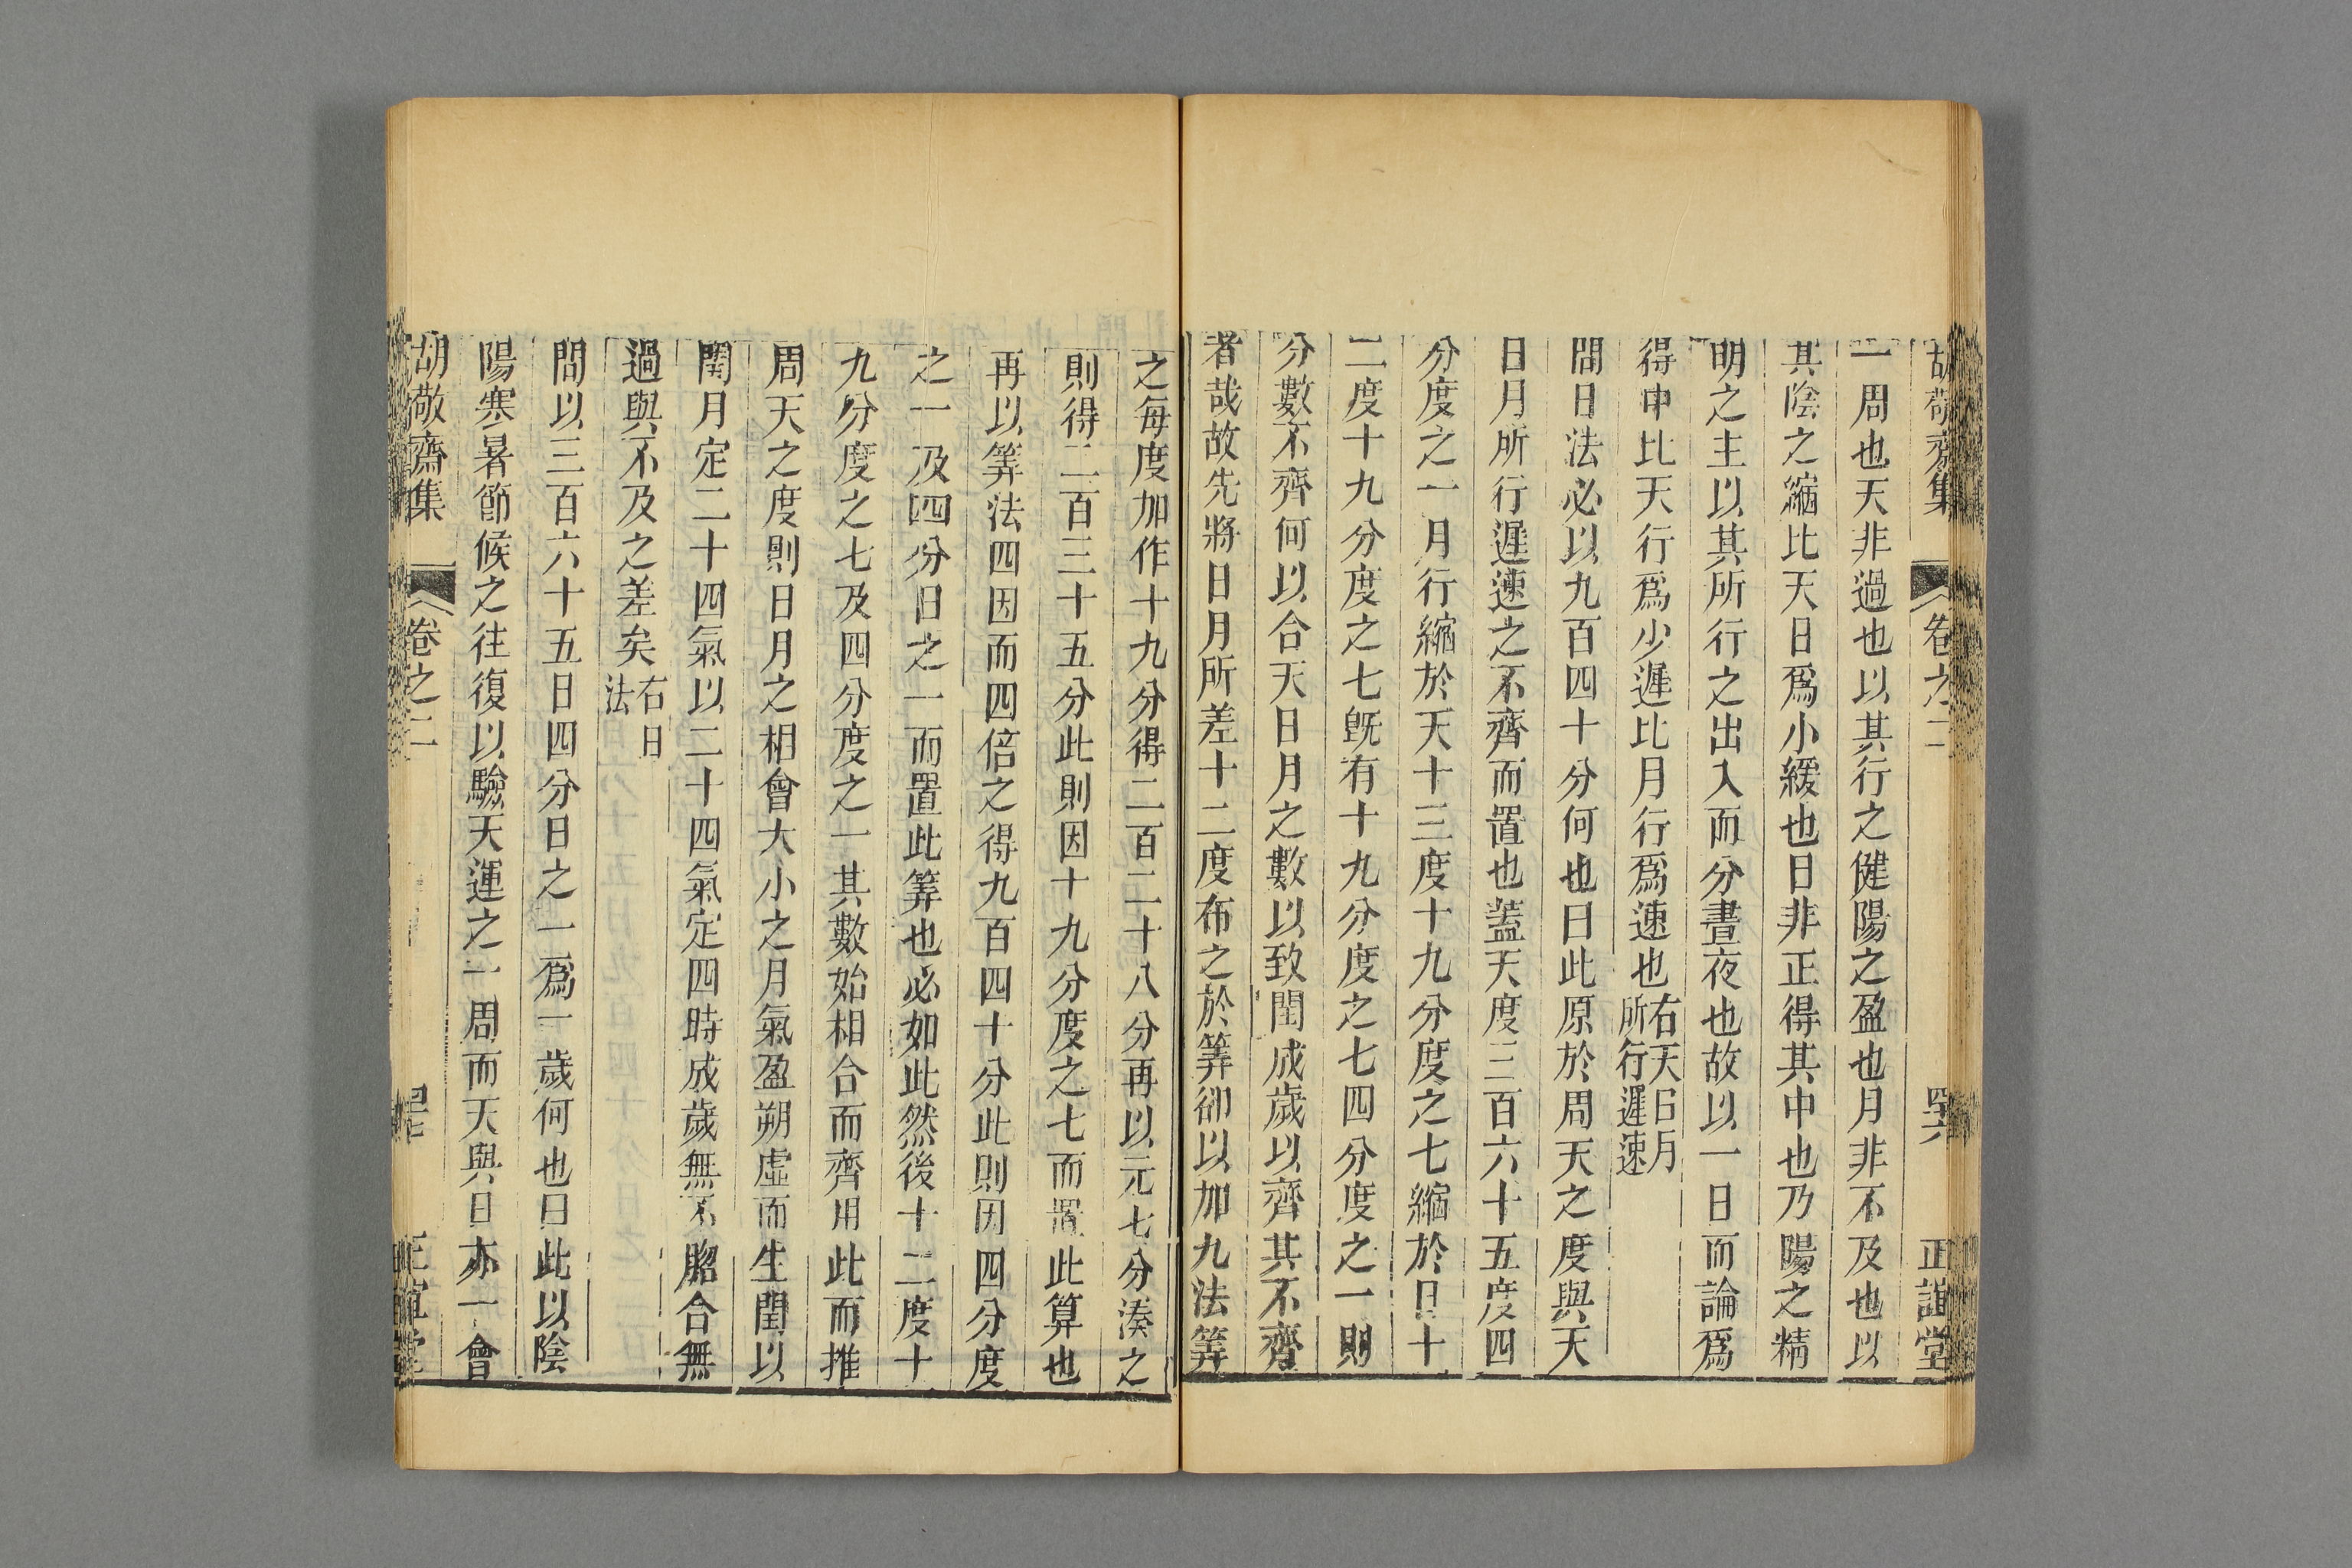 胡敬齋集 卷之二 四六 正誼堂
一周也天非過也以其行之健陽之盈也月非不及也以
其陰之縮比天日爲小緩也日非正得其中也乃陽之精
明之主以其所行之出入而分晝夜也故以一日而論爲
得中比天行爲少遲比月行爲速也右天日月所行遲速
問日法必以九百四十分何也曰此原於周天之度與天
日月所行遲速之不齊而置也蓋天度三百六十五度四
分度之一月行縮於天十三度十九分度之七縮於日十
二度十九分度之七旣有十九分度之七四分度之一則
分數不齊何以合天日月之數以致閏成歲以齊其不齊
者哉故先將日月所差十二度布之於筭卻以加九法筭
之每度加作十九分得二百二十八分再以元七分湊之
則得二百三十五分此則因十九分度之七而置此算也
再以筭法四因而四倍之得九百四十分此則因四分度
之一及四分日之一而置此筭也必如此然後十二度十
九分度之七及四分度之一其數始相合而齊用此而推
周天之度則日月之相會大小之月氣盈朔虛而生閏以
閏月定二十四氣以二十四氣定四時成歲無不脗合無
過與不及之差矣右日法
問以三百六十五日四分日之一爲一歲何也曰此以陰
陽寒暑節候之往復以驗天運之一周而天與日亦一會
胡敬齋集 卷之二 正誼堂